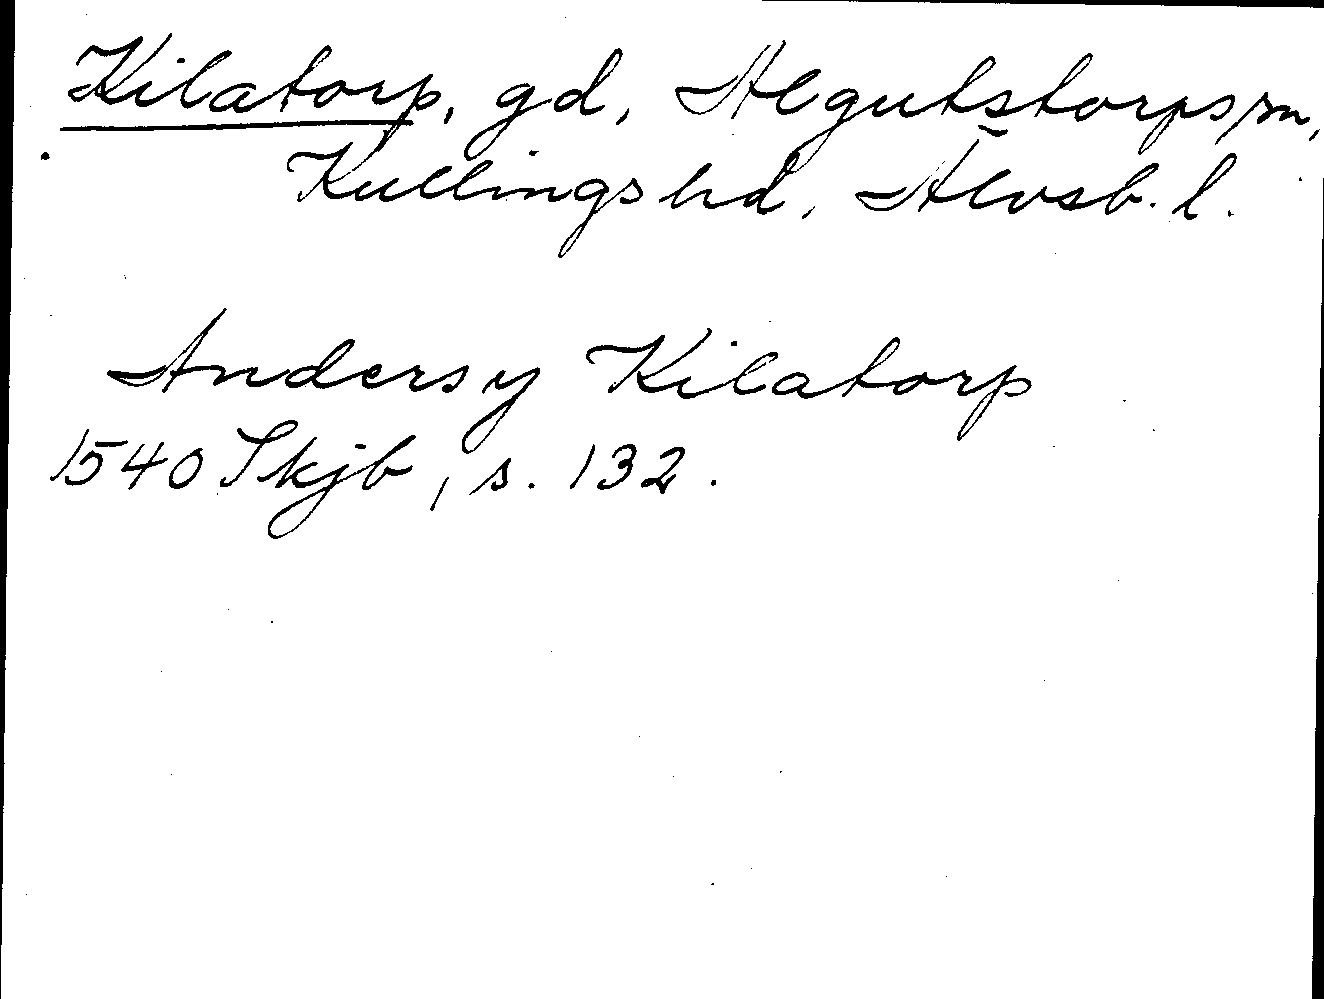 Kilatorp, gd, Algutstorps sn,
Kullings hd, Älvsb. l.
Anders y Kilatorp
1540 Skjb, s. 132.